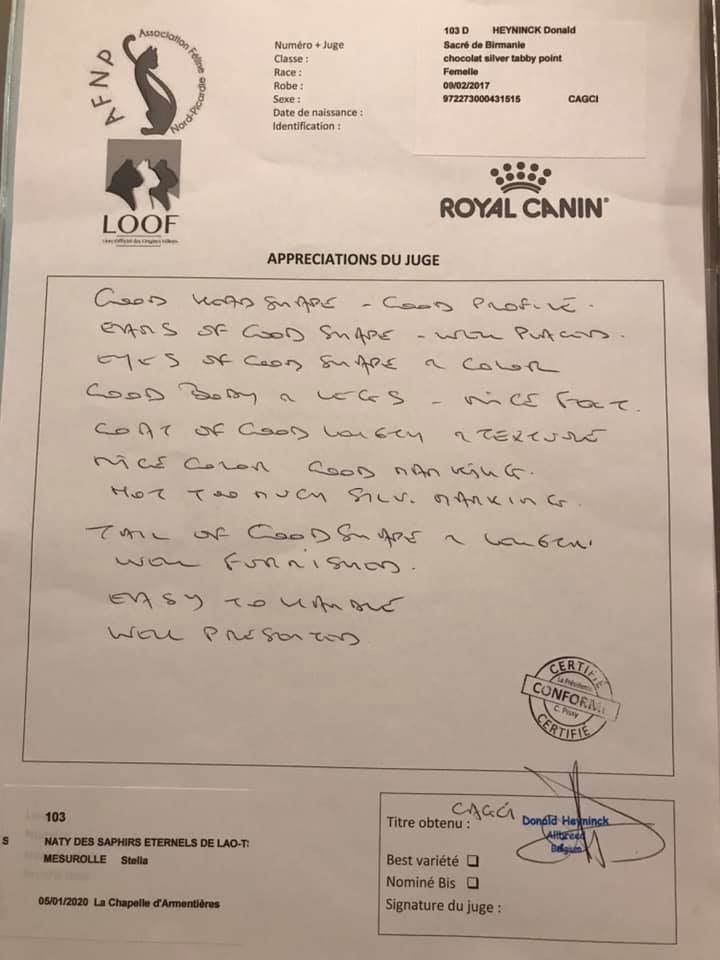 AFNP
Association Féline
Nord-Picardie
LOOF
Livre Officiel des Origines Félines
Numéro + Juge
Classe :
Race :
Robe :
Sexe :
Date de naissance :
Identification :
103 D HEYNINCK Donald
Sacré de Birmanie
chocolat silver tabby point
Femelle
09/02/2017
972273000431515 CAGCI
ROYAL CANIN
APPRECIATIONS DU JUGE
GOOD HEADSHAPE - GOOD PROFILE.
EARS OF GOOD SHAPE - WELL PLACED.
EYES OF GOOD SHAPE & COLOR
GOOD BODY & LEGS - NICE FEET.
COAT OF GOOD LENGTH & TEXTURE
NICE COLOR GOOD MARKING.
NOT TOO MUCH SILV. MARKING.
TAIL OF GOOD SHAPE & LENGTH.
WELL FURNISHED.
EASY TO HANDLE
WELL PRESENTED
CERTIFIÉ
La Présidente
CONFORME
C. Pissy
CERTIFIÉ
103
S NATY DES SAPHIRS ETERNELS DE LAO-T
MESUROLLE Stella
05/01/2020 La Chapelle d'Armentières
Titre obtenu : CAGCI
Donald Heyninck
Allbreed
Belgium
Best variété
Nominé Bis
Signature du juge :